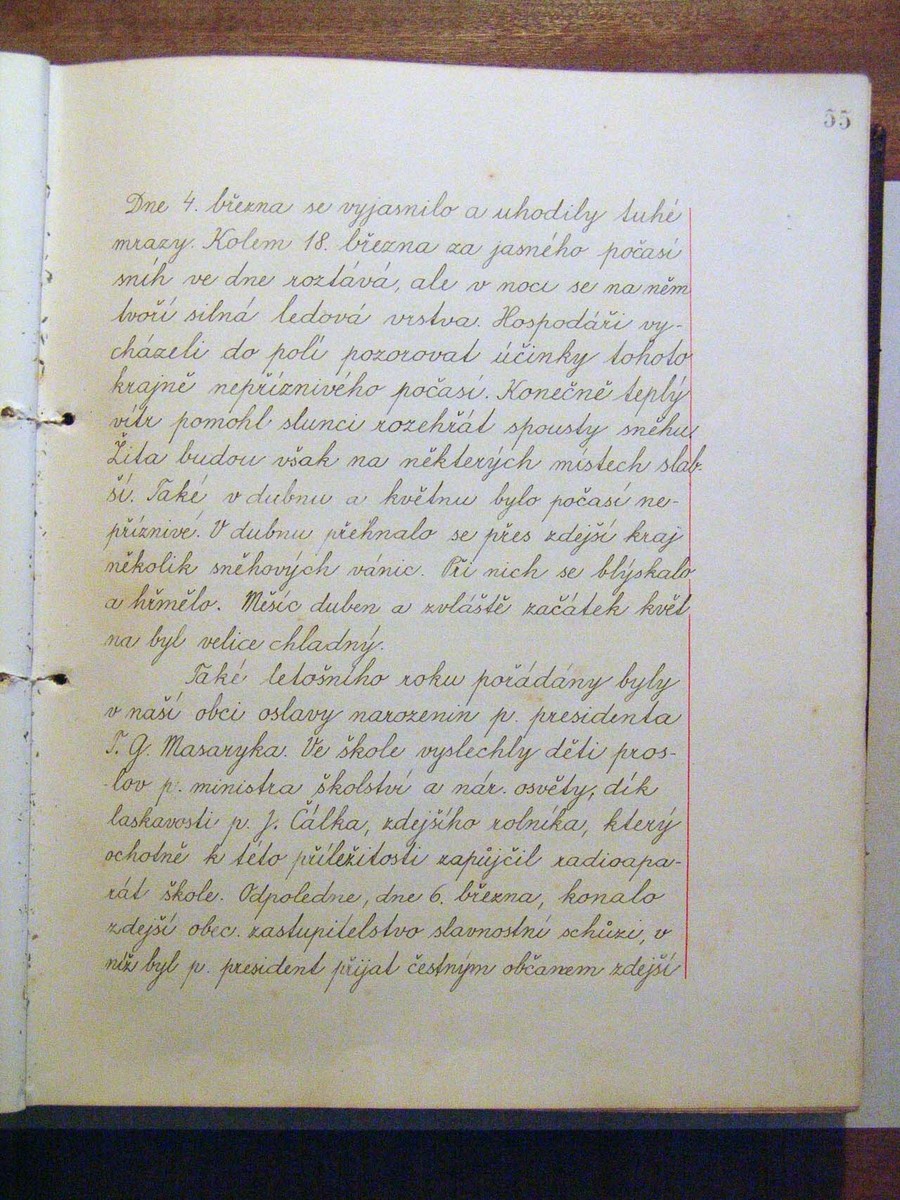 55
Dne 4. března se vyjasnilo a uhodily tuhé
mrazy. Kolem 18. března za jasného počasí
sníh ve dne roztává, ale v noci se na něm
tvoří silná ledová vrstva. Hospodáři vy-
cházeli do polí pozorovat účinky tohoto
krajně nepříznivého počasí. Konečně teplý
vítr pomohl slunci rozehřát spousty sněhu.
Žita budou však na některých místech slab-
ší. Také v dubnu a květnu bylo počasí ne-
příznivé. V dubnu přehnalo se přes zdejší kraj
několik sněhových vánic. Při nich se blýskalo
a hřmělo. Měsíc duben a zvláště začátek květ
na byl velice chladný.
Také letošního roku pořádány byly
v naší obci oslavy narozenin p. presidenta
T. G. Masaryka. Ve škole vyslechly děti pros-
lov p. ministra školství a nár. osvěty, dík
laskavosti p. J. Čálka, zdejšího rolníka, který
ochotně k této příležitosti zapůjčil radioapa-
rát škole. Odpoledne, dne 6. března, konalo
zdejší obec. zastupitelstvo slavnostní schůzi, v
níž byl p. president přijat čestným občanem zdejší